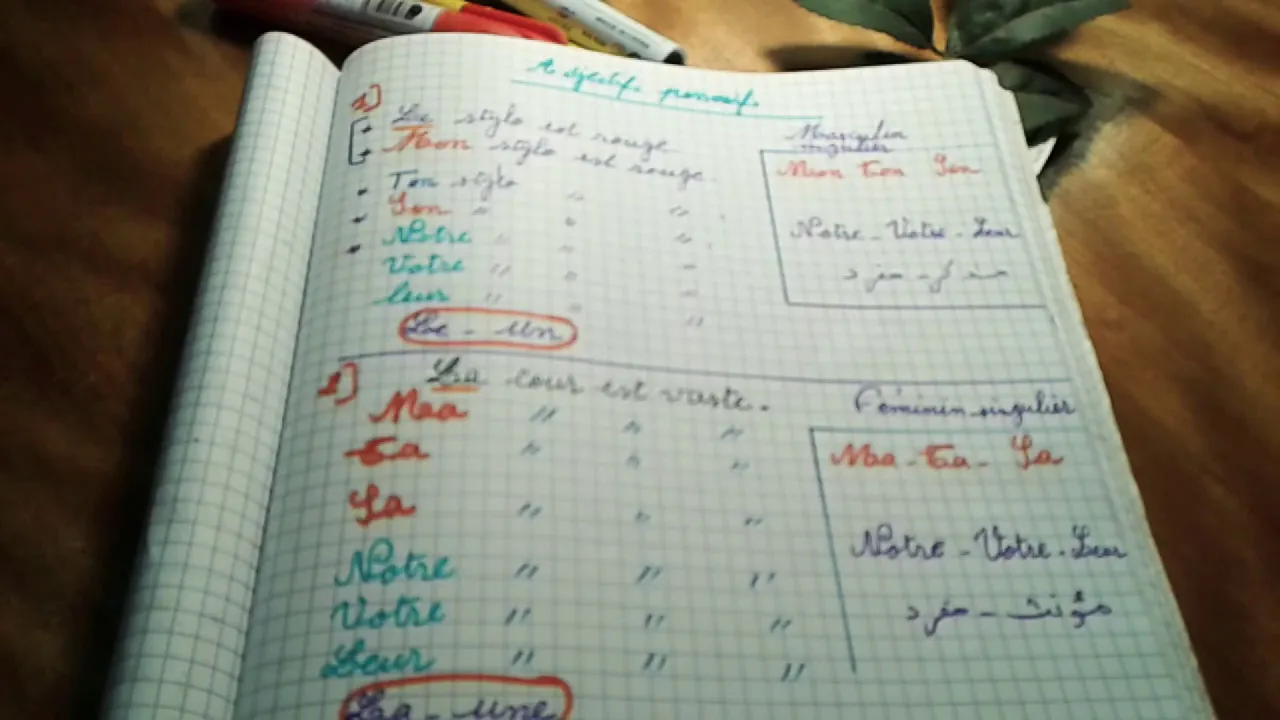 Adjectifs possessifs
1]
Le stylo est rouge.
Mon stylo est rouge.
Ton stylo " "
Son " " "
Notre " " "
Votre " " "
leur " " "
Le - Un
Masculin
singulier
Mon Ton Son
Notre - Votre - Leur
مذكر - مفرد
2]
La cour est vaste.
Maa " " "
Ta " " "
Sa " " "
Notre " " "
Votre " " "
Leur " " "
La - une
Féminin singulier
Maa - Ta - Sa
Notre - Votre - Leur
مؤنث - مفرد